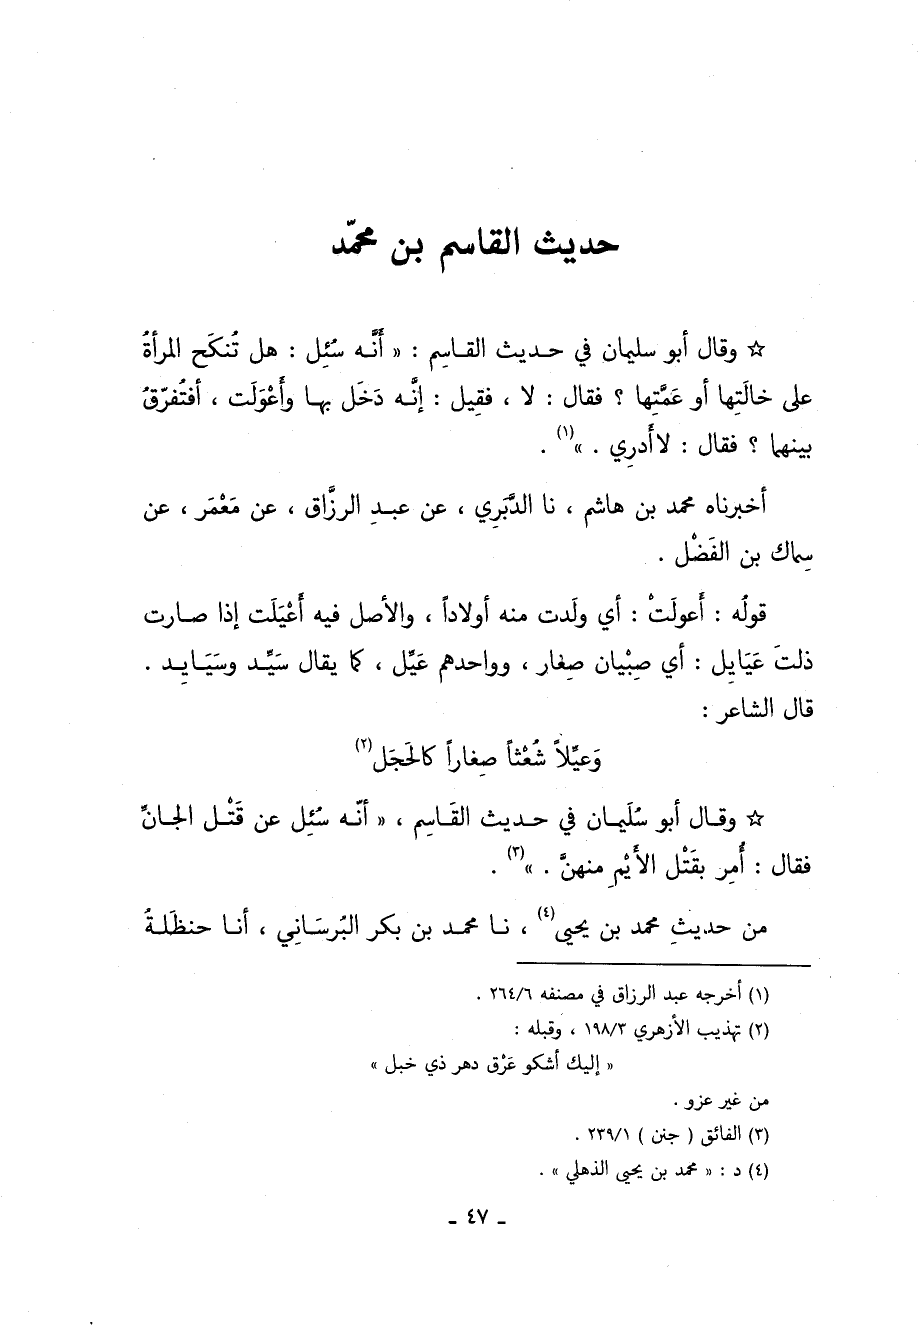 حديث القاسم بن محمّد
☆ وقال أبو سليمان في حديث القاسِم : « أَنَّه سُئِل : هل تُنكَح المرأةُ
على خالَتِها أو عَمَّتِها ؟ فقال : لا ، فقِيل : إنَّه دَخَل بها وأَعْوَلَت ، أفتُفرّقُ
بينهما ؟ فقال : لاأَدرِي . »(١) .
أخبرناه محمد بن هاشم ، نا الدَّبَرِي ، عن عبدِ الرزَّاق ، عن مَعْمَر ، عن
سِماك بن الفَضْل .
قولُه : أَعولَتْ : أي ولَدت منه أولاداً ، والأصل فيه أَعْيَلَت إذا صارت
ذلتَ عَيَايِل : أي صِبْيان صِغار ، وواحدهم عَيِّل ، كما يقال سَيِّد وسَيَايِد .
قال الشاعر :
وَعيِّلاً شُعْثاً صِغاراً كالحَجَل(٢)
☆ وقال أبو سُلَيمان في حديث القَاسِم ، « أنّه سُئِل عن قَتْل الجانِّ
فقال : أُمِر بقَتْل الأَيْمِ منهنَّ . »(٣) .
من حديثِ محمد بن يحيى(٤) ، نا محمد بن بكر البُرسَانِي ، أنا حنظَلةُ
(١) أخرجه عبد الرزاق في مصنفه ٢٦٤/٦ .
(٢) تهذيب الأزهري ١٩٨/٣ ، وقبله :
« إليك أشكو عَرْق دهر ذي خبل »
من غير عزو .
(٣) الفائق ( جنن ) ٢٣٩/١ .
(٤) د : « محمد بن يحيى الذهلي » .
ـ ٤٧ ـ